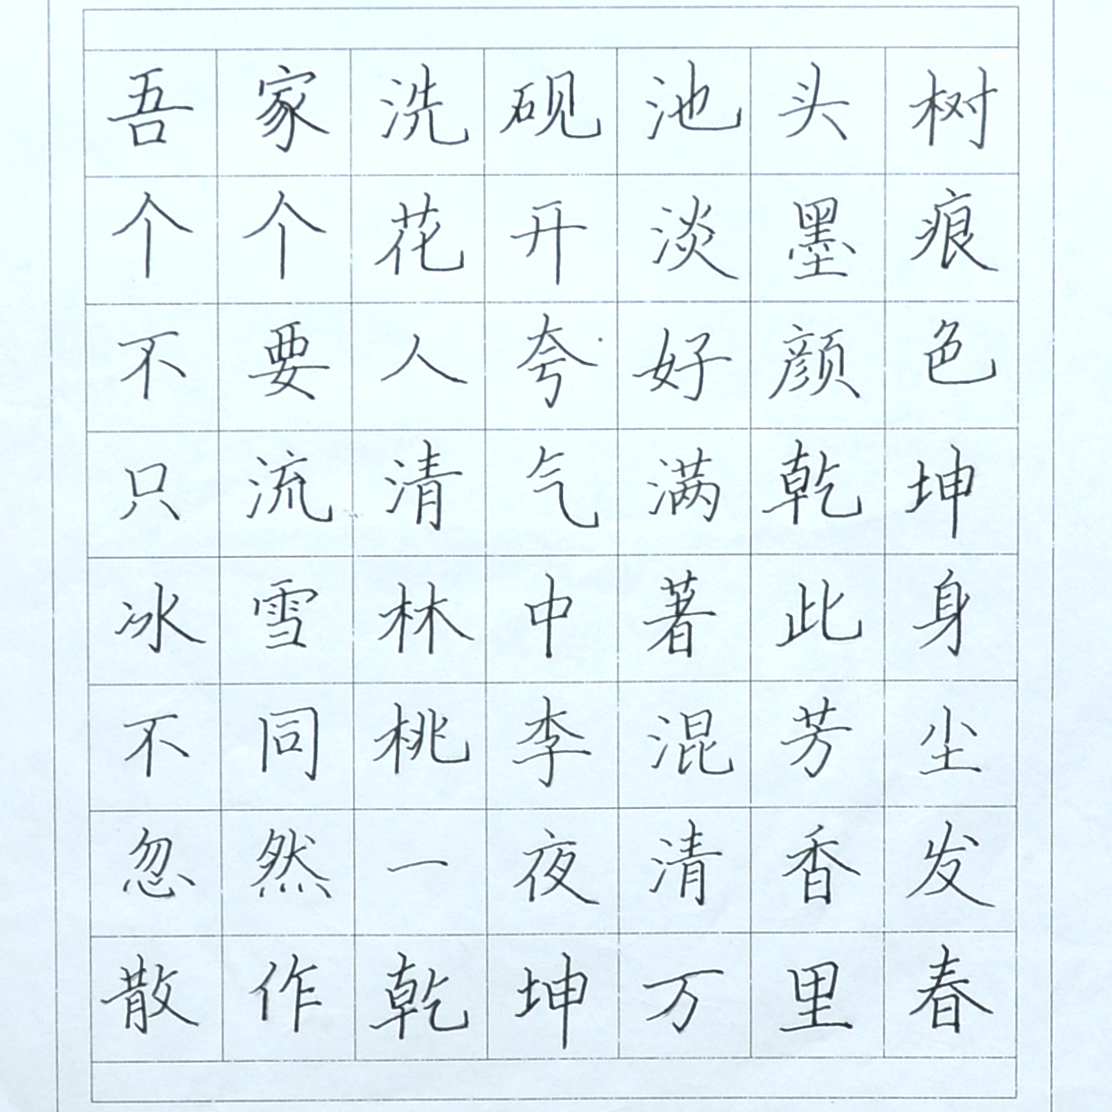 吾家洗砚池头树
个个花开淡墨痕
不要人夸好颜色
只流清气满乾坤
冰雪林中著此身
不同桃李混芳尘
忽然一夜清香发
散作乾坤万里春